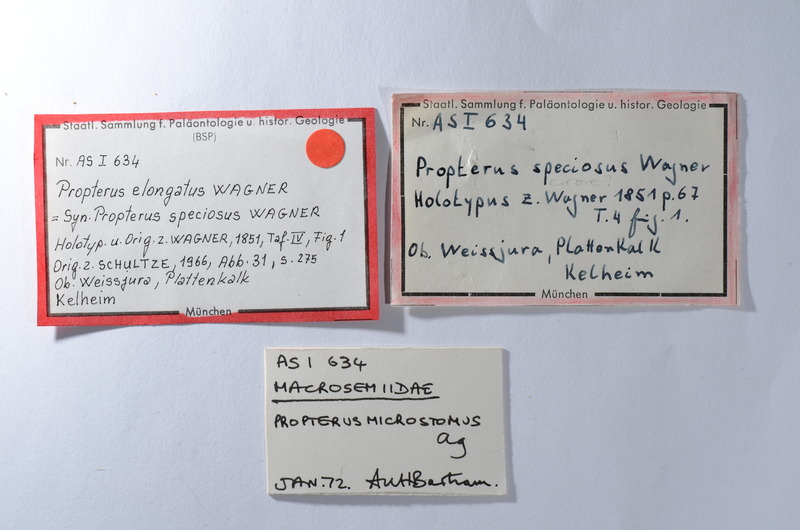 Staatl. Sammlung f. Paläontologie u. histor. Geologie
(BSP)
Nr. AS I 634
Propterus elongatus WAGNER
= Syn. Propterus speciosus WAGNER
Holotyp. u. Orig. z. WAGNER, 1851, Taf. IV, Fig. 1
Orig. z. SCHULTZE, 1966, Abb. 31, S. 275
Ob. Weissjura, Plattenkalk
Kelheim
München
Staatl. Sammlung f. Paläontologie u. histor. Geologie
Nr. AS I 634
Propterus speciosus Wagner
Holotypus z. Wagner 1851 p. 67
T. 4 fig. 1.
Ob. Weissjura, Plattenkalk
Kelheim
München
AS I 634
MACROSEMIIDAE
PROPTERUS MICROSTOMUS
Ag
JAN. 72. AWHBartram.